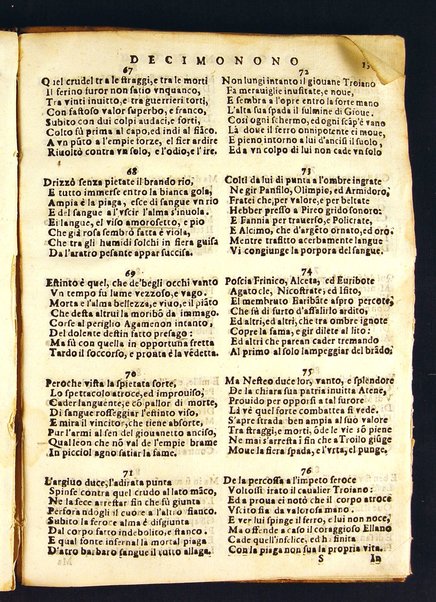 DECIMONONO
67
Quel crudel tra le straggi, e tra le morti
Il ferino furor non satio vnquanco,
Tra vinti inuitto, e tra guerrieri torti,
Con fastoso valor superbo, e franco,
Subito con dui colpi audaci, e forti,
Coltò sù prima al capo, ed indi al fiãco.
A vn pũto a l'empie forze, el fier ardire
Riuoltò contra vn solo, e l'odio, e l'ire.
68
Drizzò senza pietate il brando rio,
E tutto immerse entro la bianca gola,
Ampia è la piaga, esce di sangue vn rio
E del sangue al vscir l'alma s'inuola.
El langue, el viso amorosetto, e pio
Che già rosa sembrò fatta è viola,
Che tra gli humidi solchi in fiera guisa
Da l'aratro pesante appar succisa.
69
Estinto è quel, che de'begli occhi vanto
Vn tempo fu lume vezzoso, e vago.
Morta è l'alma bellezza, e viuo, e il piãto
Che desta altrui la moribõ da immago.
Corse al periglio Agamenon intanto,
Del dolente destin fatto presago:
Ma sù con quella in opportuna fretta
Tardo il soccorso, e pronta è la vẽdetta.
70
Peroche vista la spietata sorte,
Lo spettacolo atroce, ed improuiso;
Cader languente, e cõ pallor di morte,
Di sangue rosseggiar l'estinto viso,
E mira il vincitor, che tiene absorte,
Pur l'armi al sen del giouanetto anciso,
Qual leon che nõ val de l'empie brame
In picciol agno satiar la fame.
71
L'argiuo duce, l'adirata punta
Spinse contra quel crudo al lato mãco,
Ne la fece arrestar fin che sù giunta
Perforandogli il cuore a l'altro fianco.
Subito la feroce alma è disgiunta
Dal corpo fatto indebolito, e stanco.
E qual fonte immenso in piu d'vn piaga
D'atro barbaro sangue il tutto allaga.
72
Non lungi intanto il giouane Troiano
Fa merauiglie inusitate, e noue,
E sembra a l'opre entro la forte mano
L'alta sua spada il fulmine di Gioue.
Così ogni schermo, ed ogni scãp'è vano
Là doue il ferro onnipotente ei moue,
E pieno intorno a lui d'ancisi il suolo,
Ed a vn colpo di lui non cade vn solo
73
Colti da lui di punta a l'ombre ingrate
Ne gir Panfilo, Olimpie, ed Armidoro,
Fratei che, per valore, e per beltate
Hebber presso à Piro grido sonoro:
E Fannia per trauerso, e Policrate,
E Alcimo, che d'argẽto ornato, ed oro.
Mentre trafitto acerbamente langue
Vi congiunge la porpora del sangue.
74
Poscia Frinico, Alceta, ed Euribote
Agatocle, Nicostrate, ed Isito,
El membruto Earibãte aspro percote,
Che sù di furto d'assalirlo ardito,
Ed altri, ed altri, che tra ombre ignote
Copre la fama, e gir dilete al lito:
Ed altri che parean cader tremando
Al primo al solo lampeggiar del brãdo.
75
Ma Nesteo duce lor, vanto, e splendore
De la chiara sua patria inuitta Atene,
Prouido per opporsi a tal furore
Li vè quel forte combattea si vede.
S'apre strada ben ampia al suo valore
Tra straggi, e morti, õ de le vie sõ piene
Ne mai s'arresta fin che a Troilo giũge
Moue la fiera spada, e l'vrta, el punge,
76
De la percossa a l'impeto feroce
Voltossi irato il caualier Troiano:
Ed a proua ei notò che il corpo atroce
Vscito fia da valorosa mano.
E ver lui spinge il ferro, e lui non noce,
Ma offende a caso il coraggioso Ellano
Cade quell'infelice, ed hà finita
Con la piaga non sua la propria vita.
S In